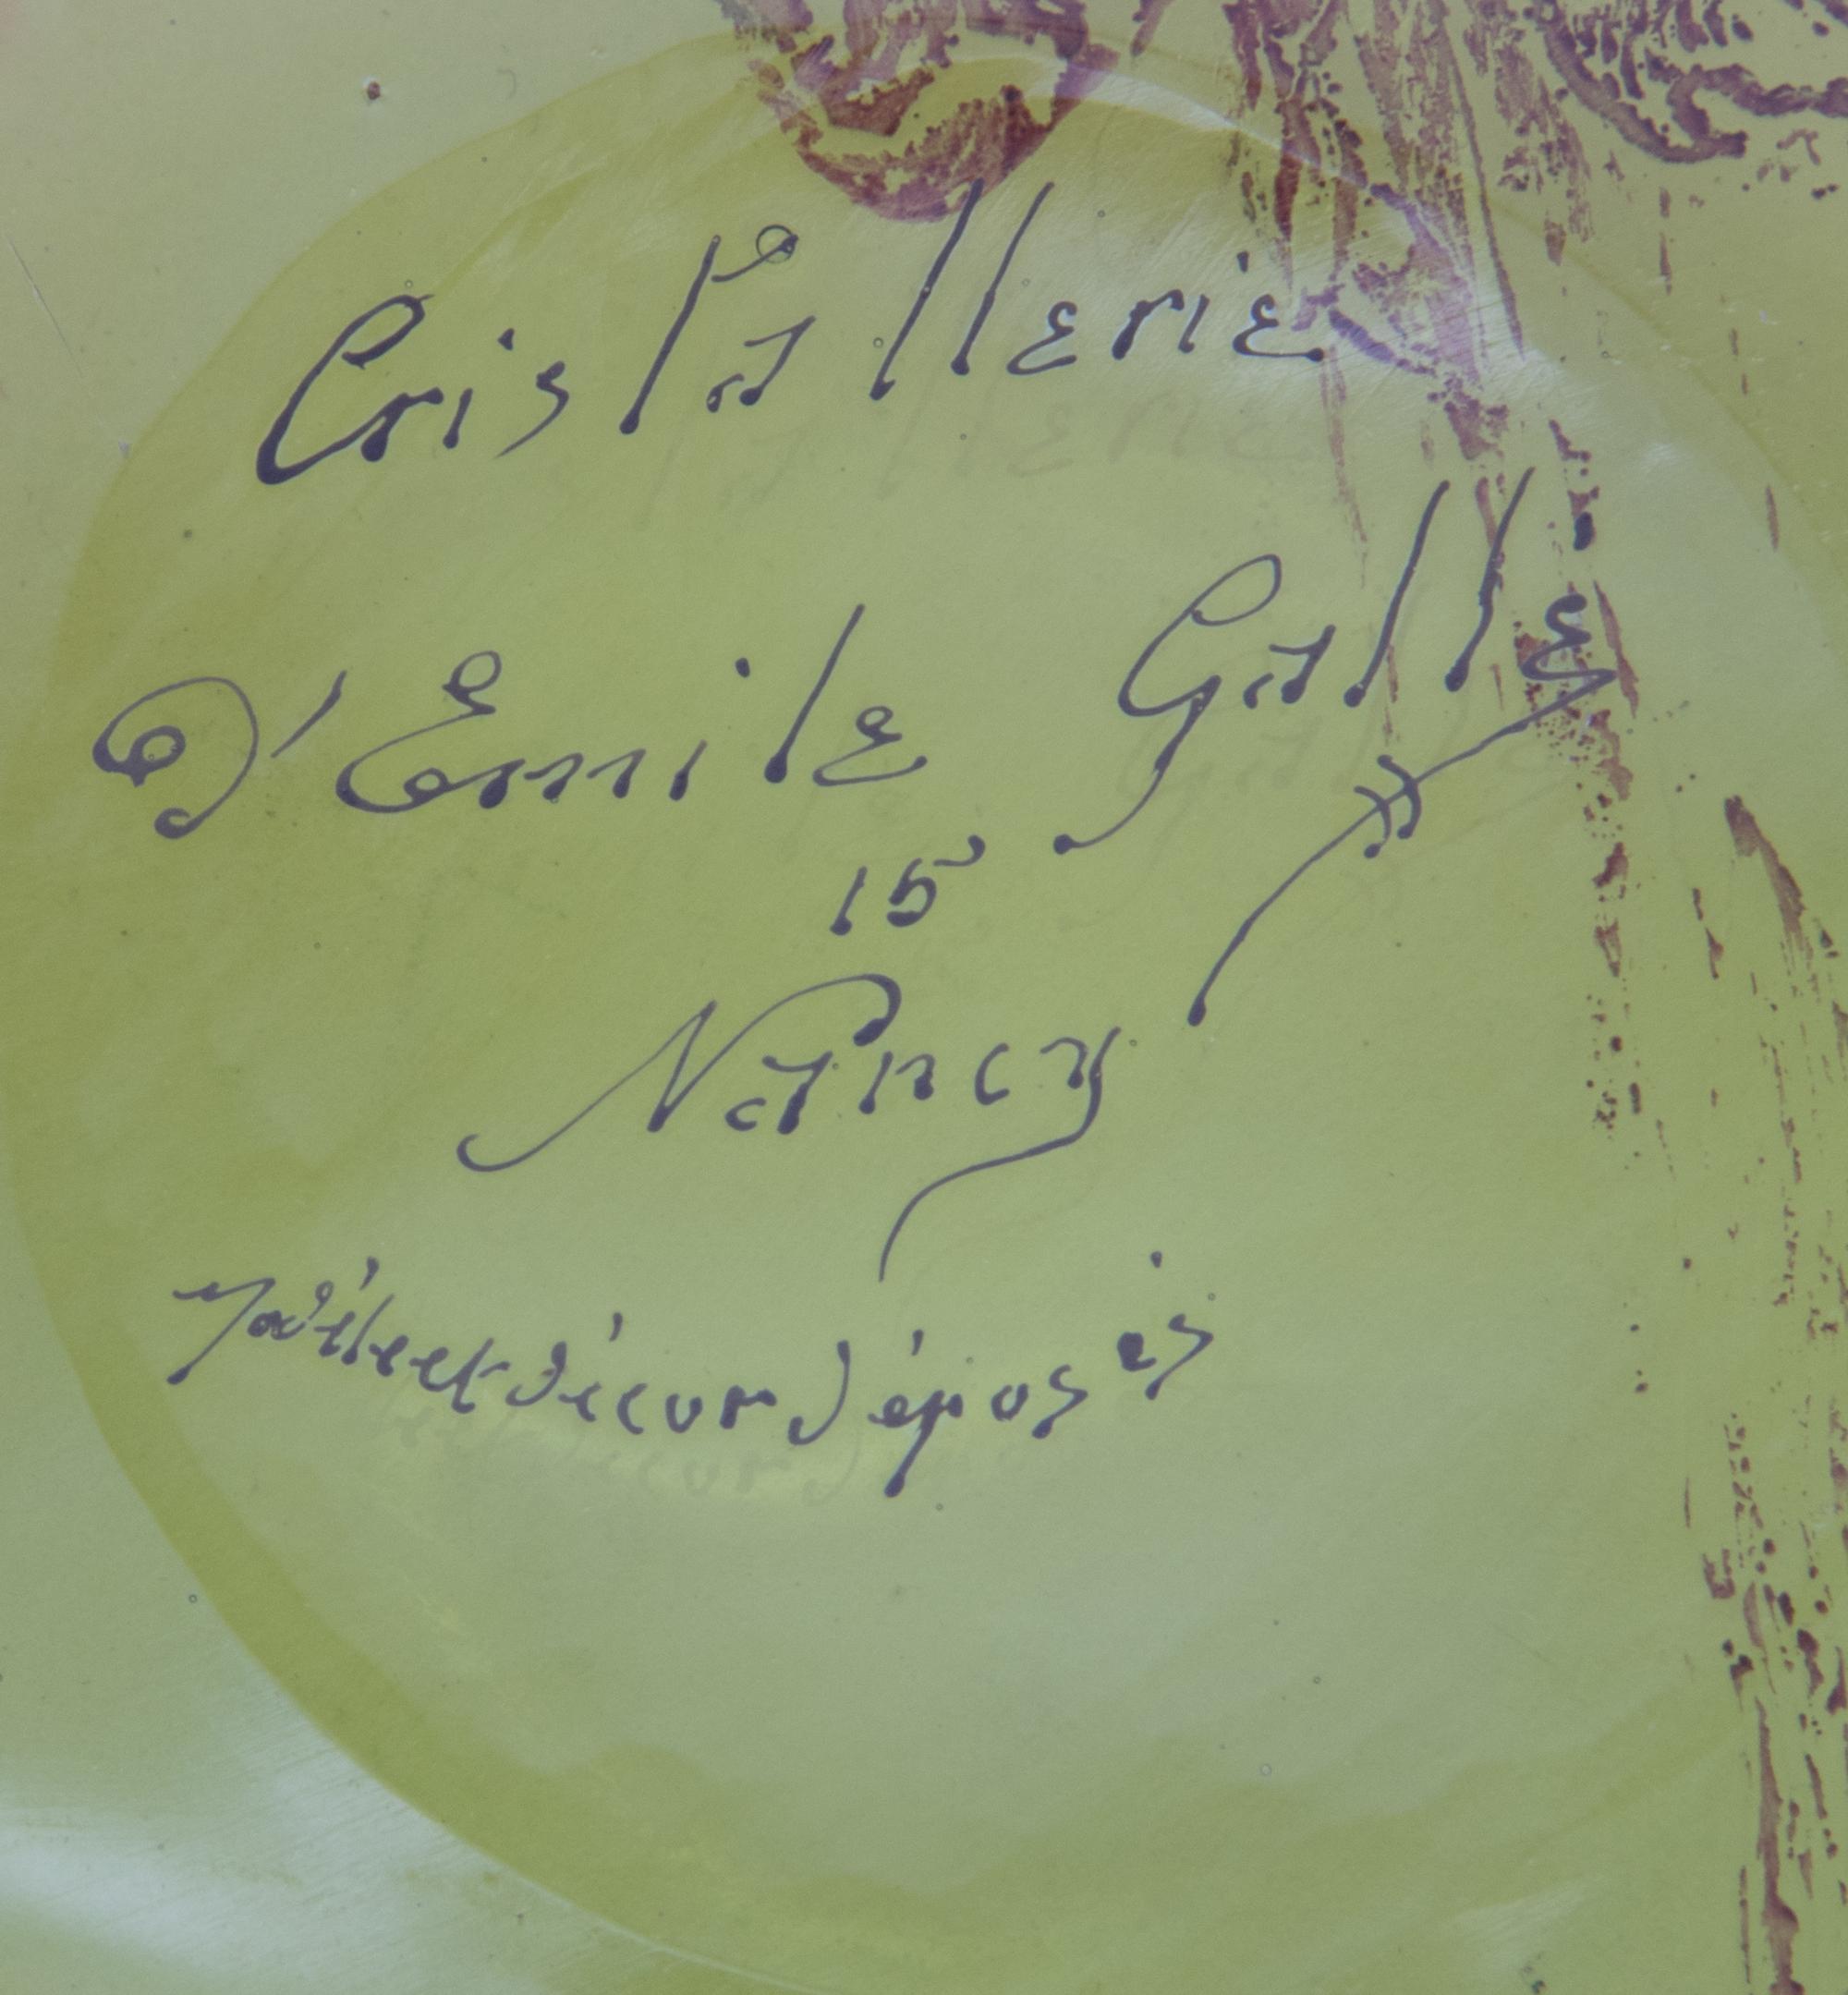 Cristallerie
D'Emile Gallé
15
Nancy
Modèle et décor déposés